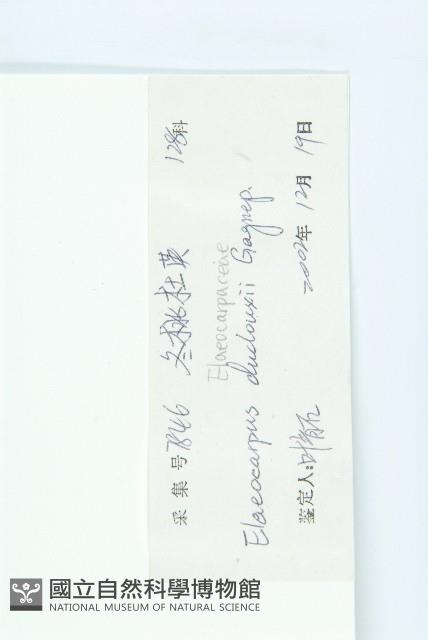 采集号 7846 冬桃杜英 128科
Elaeocarpaceae
Elaeocarpus duclouxii Gagnep.
鉴定人: 2002年 12月 19日
國立自然科學博物館
NATIONAL MUSEUM OF NATURAL SCIENCE